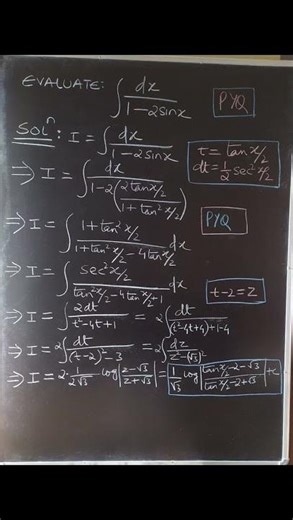 EVALUATE: ∫ dx/(1-2sinx) PYQ
SOLⁿ: I = ∫ dx/(1-2sinx)
t = tan x/2
dt = 1/2 sec² x/2
⇒ I = ∫ dx/(1-2(2tan x/2/(1+tan² x/2)))
⇒ I = ∫ (1+tan² x/2)/(1+tan² x/2 - 4tan x/2) dx PYQ
⇒ I = ∫ sec² x/2/(tan² x/2 - 4tan x/2 + 1) dx
t-2=z
⇒ I = ∫ 2dt/(t²-4t+1) = 2∫ dt/((t²-4t+4)+1-4)
⇒ I = 2∫ dt/((t-2)²-3) = 2∫ dz/(z²-(√3)²)
⇒ I = 2·1/(2√3) log|(z-√3)/(z+√3)| = 1/√3 log|(tan x/2 -2-√3)/(tan x/2 -2+√3)|+c